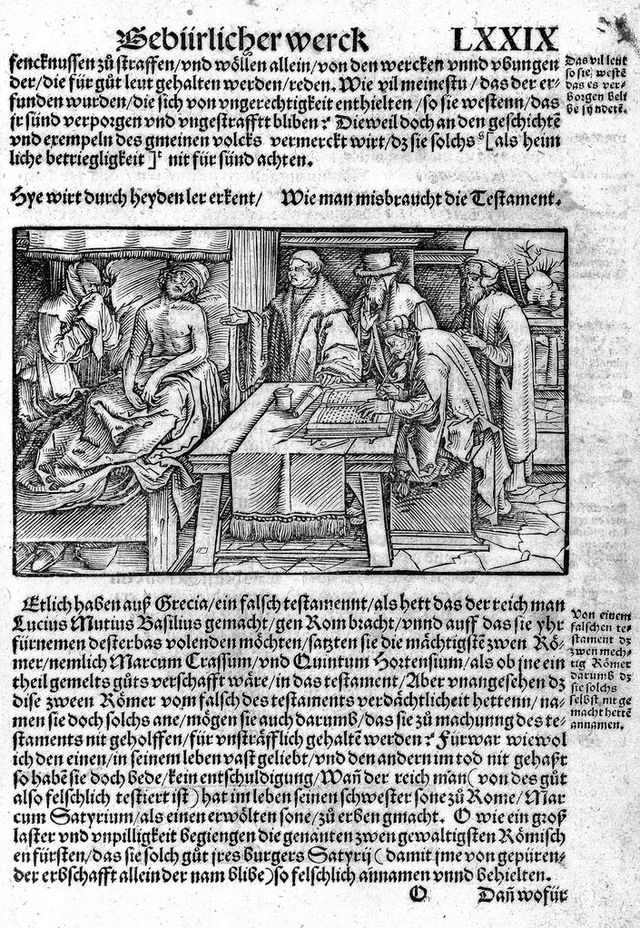 Gebürlicher werck LXXIX
fencknussen zů straffen/vnd wöllen allein/von den wercken vnnd vbungen
der/die für gůt leut gehalten werden/reden. Wie vil meinestu/das der er-
funden wurden/die sich von vngerechtigkeit enthielten/so sie westenn/das
jr sünd verporgen vnd vngestrafft bliben? Dieweil doch an den geschichtē
vnd exempeln des gmeinen volcks vermerckt wirt/dz sie solchs [als heim
liche betriegligkeit] nit für sünd achten.
Das vil leut
so sie, westē
das es ver-
borgen belt
be sündetē.
Hye wirt durch heyden ler erkent/ Wie man misbraucht die Testament.
Etlich haben auß Grecia/ein falsch testamennt/als hett das der reich man
Lucius Mutius Basilius gemacht/gen Rom bracht/vnnd auff das sie yhr
fürnemen desterbas volenden möchten/satzten sie die mächtigstē zwen Rö-
mer/nemlich Marcum Crassum/vnd Quintum Hortensium/als ob jne ein
theil gemelts gůts verschafft wäre/in das testament/Aber vnangesehen dz
dise zween Römer vom falsch des testaments verdächtlicheit hettenn/na-
men sie doch solchs ane/mögen sie auch darumb/das sie zů machung des te-
staments nit geholffen/für vnsträfflich gehaltē werden? Fürwar wiewol
ich den einen/in seinem leben vast geliebt/vnd den andern im tod nit gehaßt
so habēn sie doch bede/kein entschuldigung/Wañ der reich man (von des gůt
also felschlich testiert ist) hat im leben seinen schwester sone zů Rome/Mar
cum Satyrium/als einen erwölten sone/zů erben gmacht. O wie ein groß
laster vnd vnpilligkeit begiengen die genanten zwen gewaltigsten Römisch
en fürsten/das sie solch gůt jres burgers Satyrij (damit jme von gepüren-
der erbschafft allein der nam blibe) so felschlich añamen vnnd behielten.
Von einem
falschen te-
stament dz
zwen mech-
tig Römer
darumb dz
sie solchs
selbst nit ge
macht hettē
annamen.
O Dañ wofür